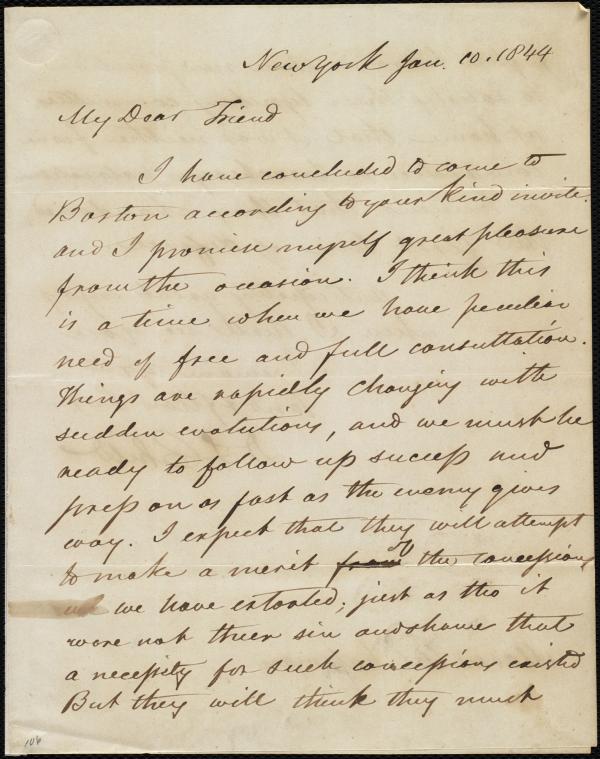 New York Jan. 10. 1844
My Dear Friend
I have concluded to come to
Boston according to your kind invite.
and I promise myself great pleasure
from the occasion. I think this
is a time when we have peculiar
need of free and full consultation.
Things are rapidly changing with
sudden evolutions, and we must be
ready to follow up success and
press on as fast as the enemy gives
way. I expect that they will attempt
to make a merit from of the concessions
we have extorted; just as tho it
were not their sin and shame that
a necessity for such concessions existed
But they will think they must
106